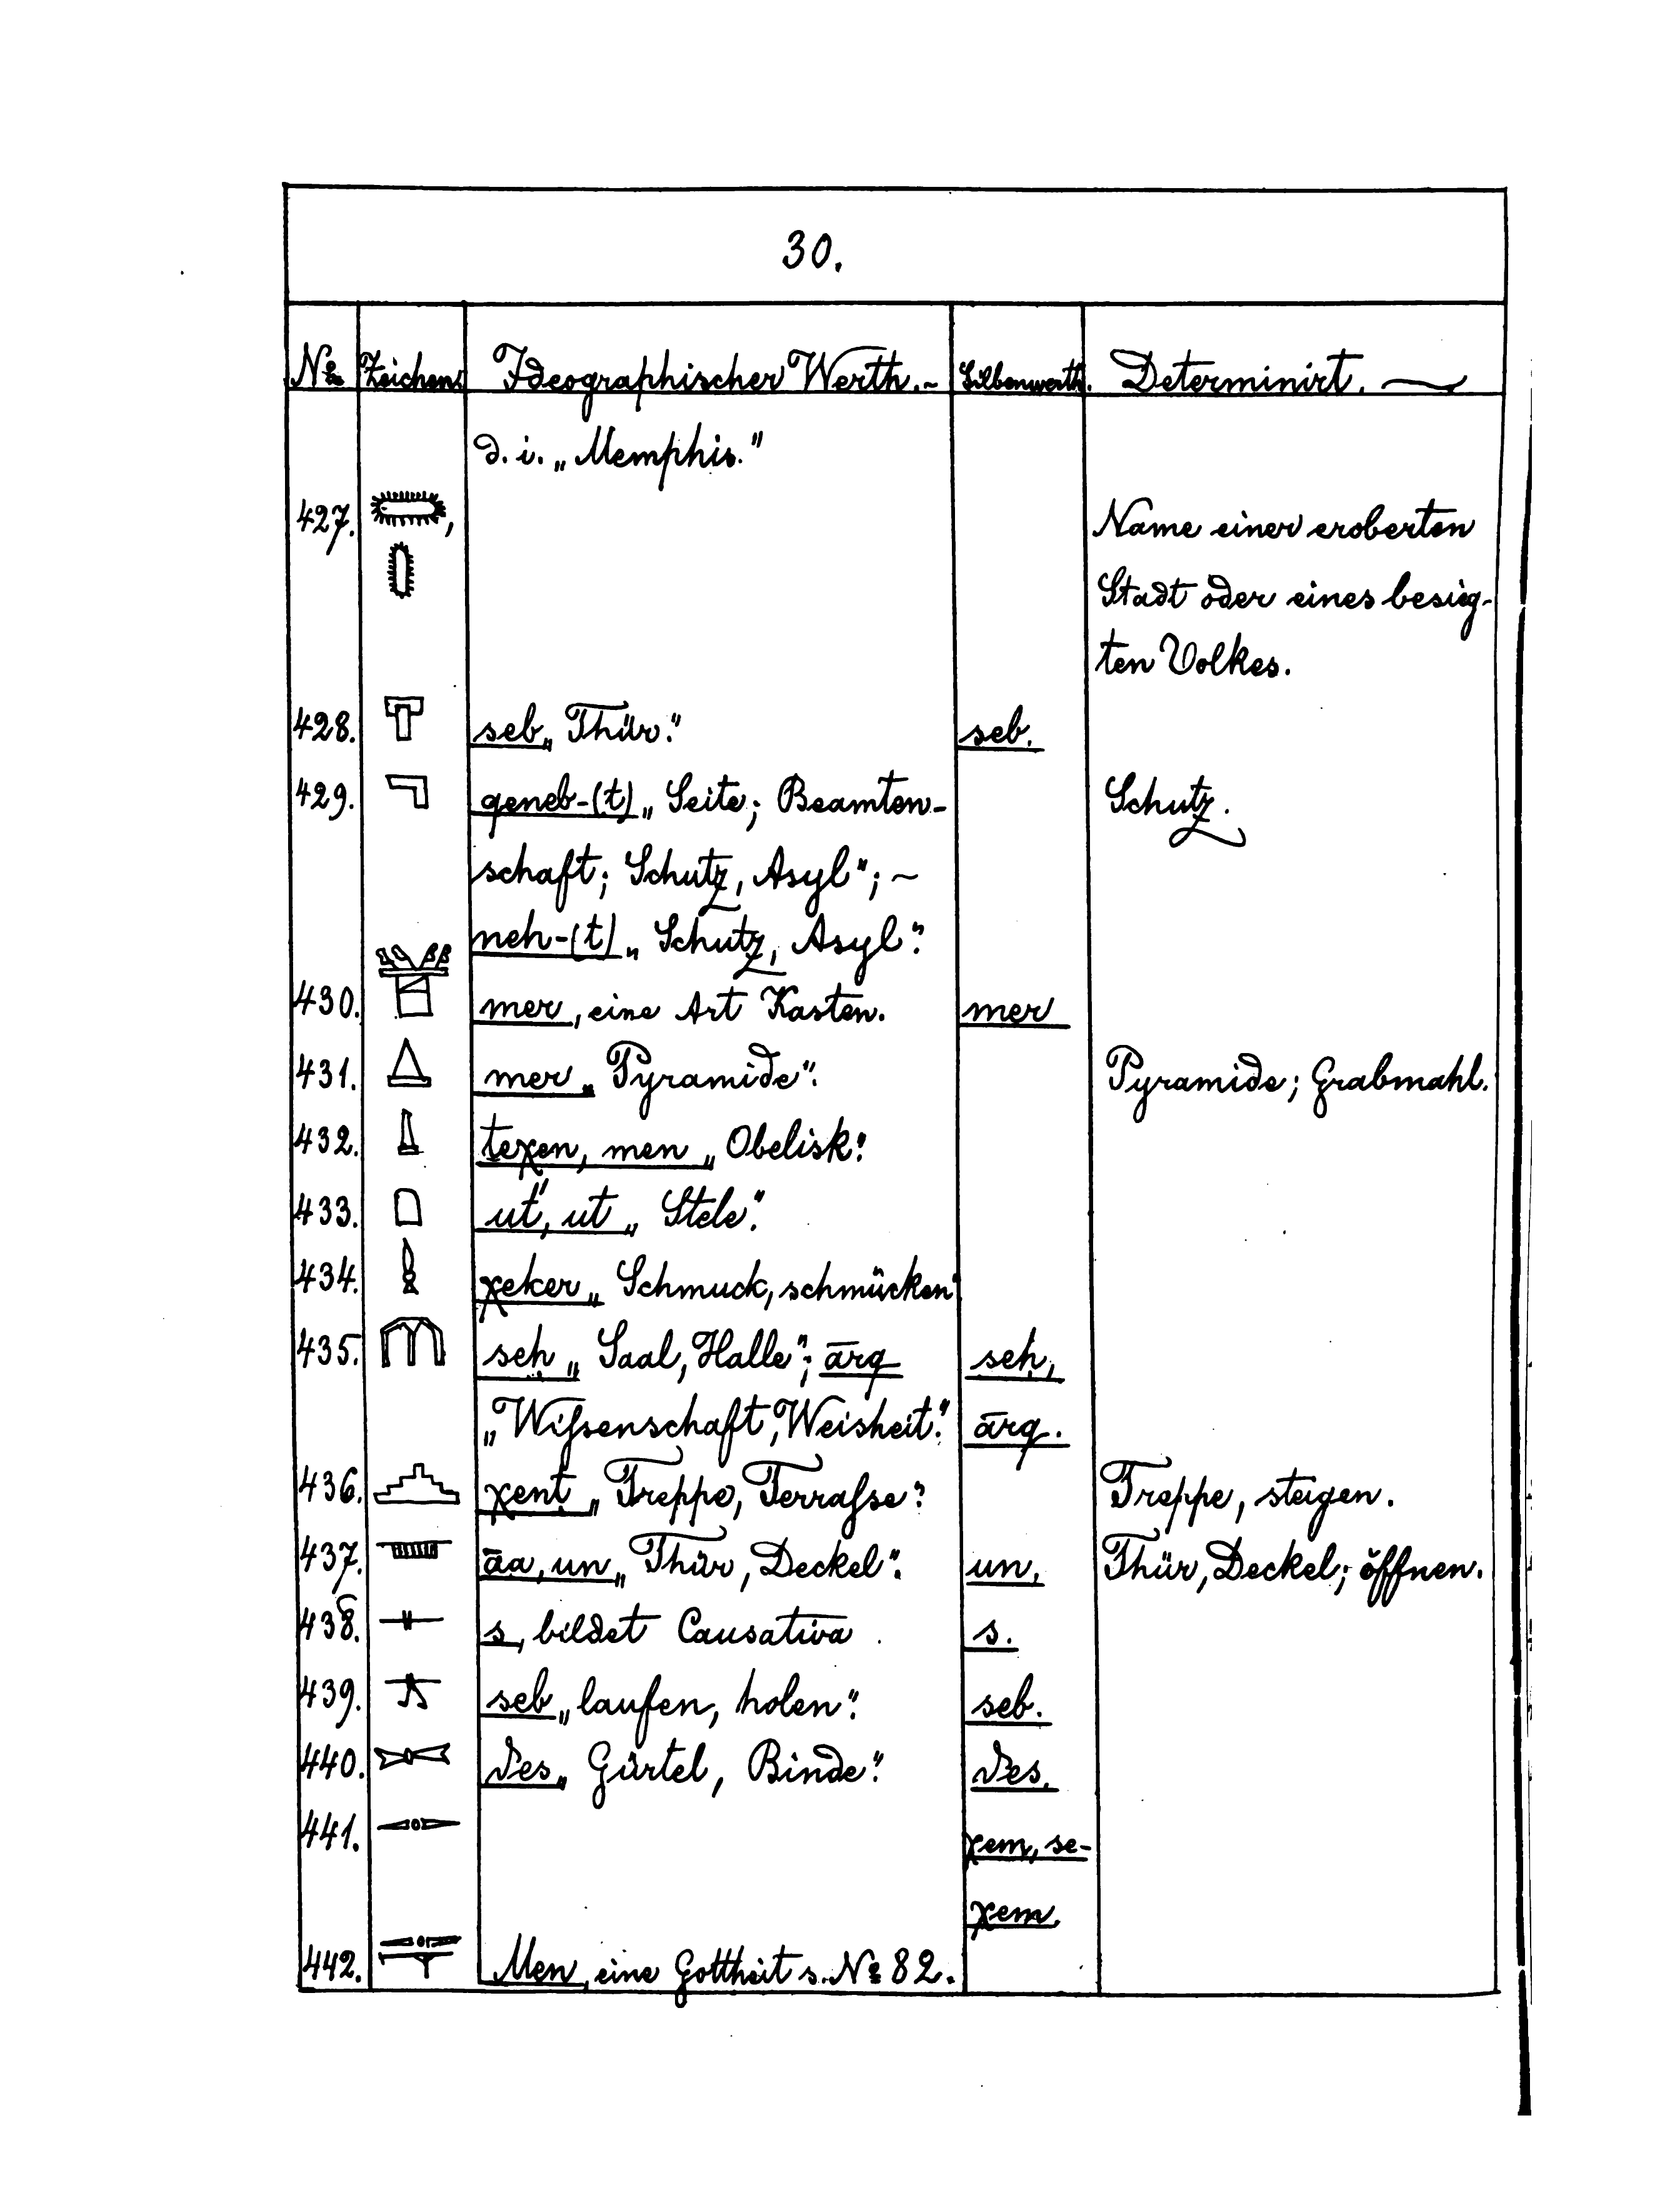 30.
No. Zeichen. Ideographischer Werth.~ Silbenwerth. Determinirt.
d. i. „Memphis."
427. , Name einer eroberten
Stadt oder eines besieg-
ten Volkes.
428. seb „Thür." seb.
429. qeneb-(t) „Seite; Beamten- Schutz.
schaft; Schutz, Asyl"; ~
neh-(t) „Schutz, Asyl".
430. mer, eine Art Kasten. mer
431. mer „Pyramide". Pyramide; Grabmahl.
432. teχen, men „Obelisk".
433. ut", ut „Stele".
434. χeker „Schmuck, schmücken"
435. seḥ „Saal, Halle"; ārq seḥ,
„Wißenschaft, Weisheit." ārq.
436. χent „Treppe, Terraſse". Treppe, steigen.
437. āa, un „Thür, Deckel". un, Thür, Deckel; öffnen.
438. s, bildet Causativa. s.
439. seb „laufen, holen". seb.
440. Tes „Gürtel, Binde". Tes.
441. χem, se-
χem.
442. Men, eine Gottheit s. No. 82.